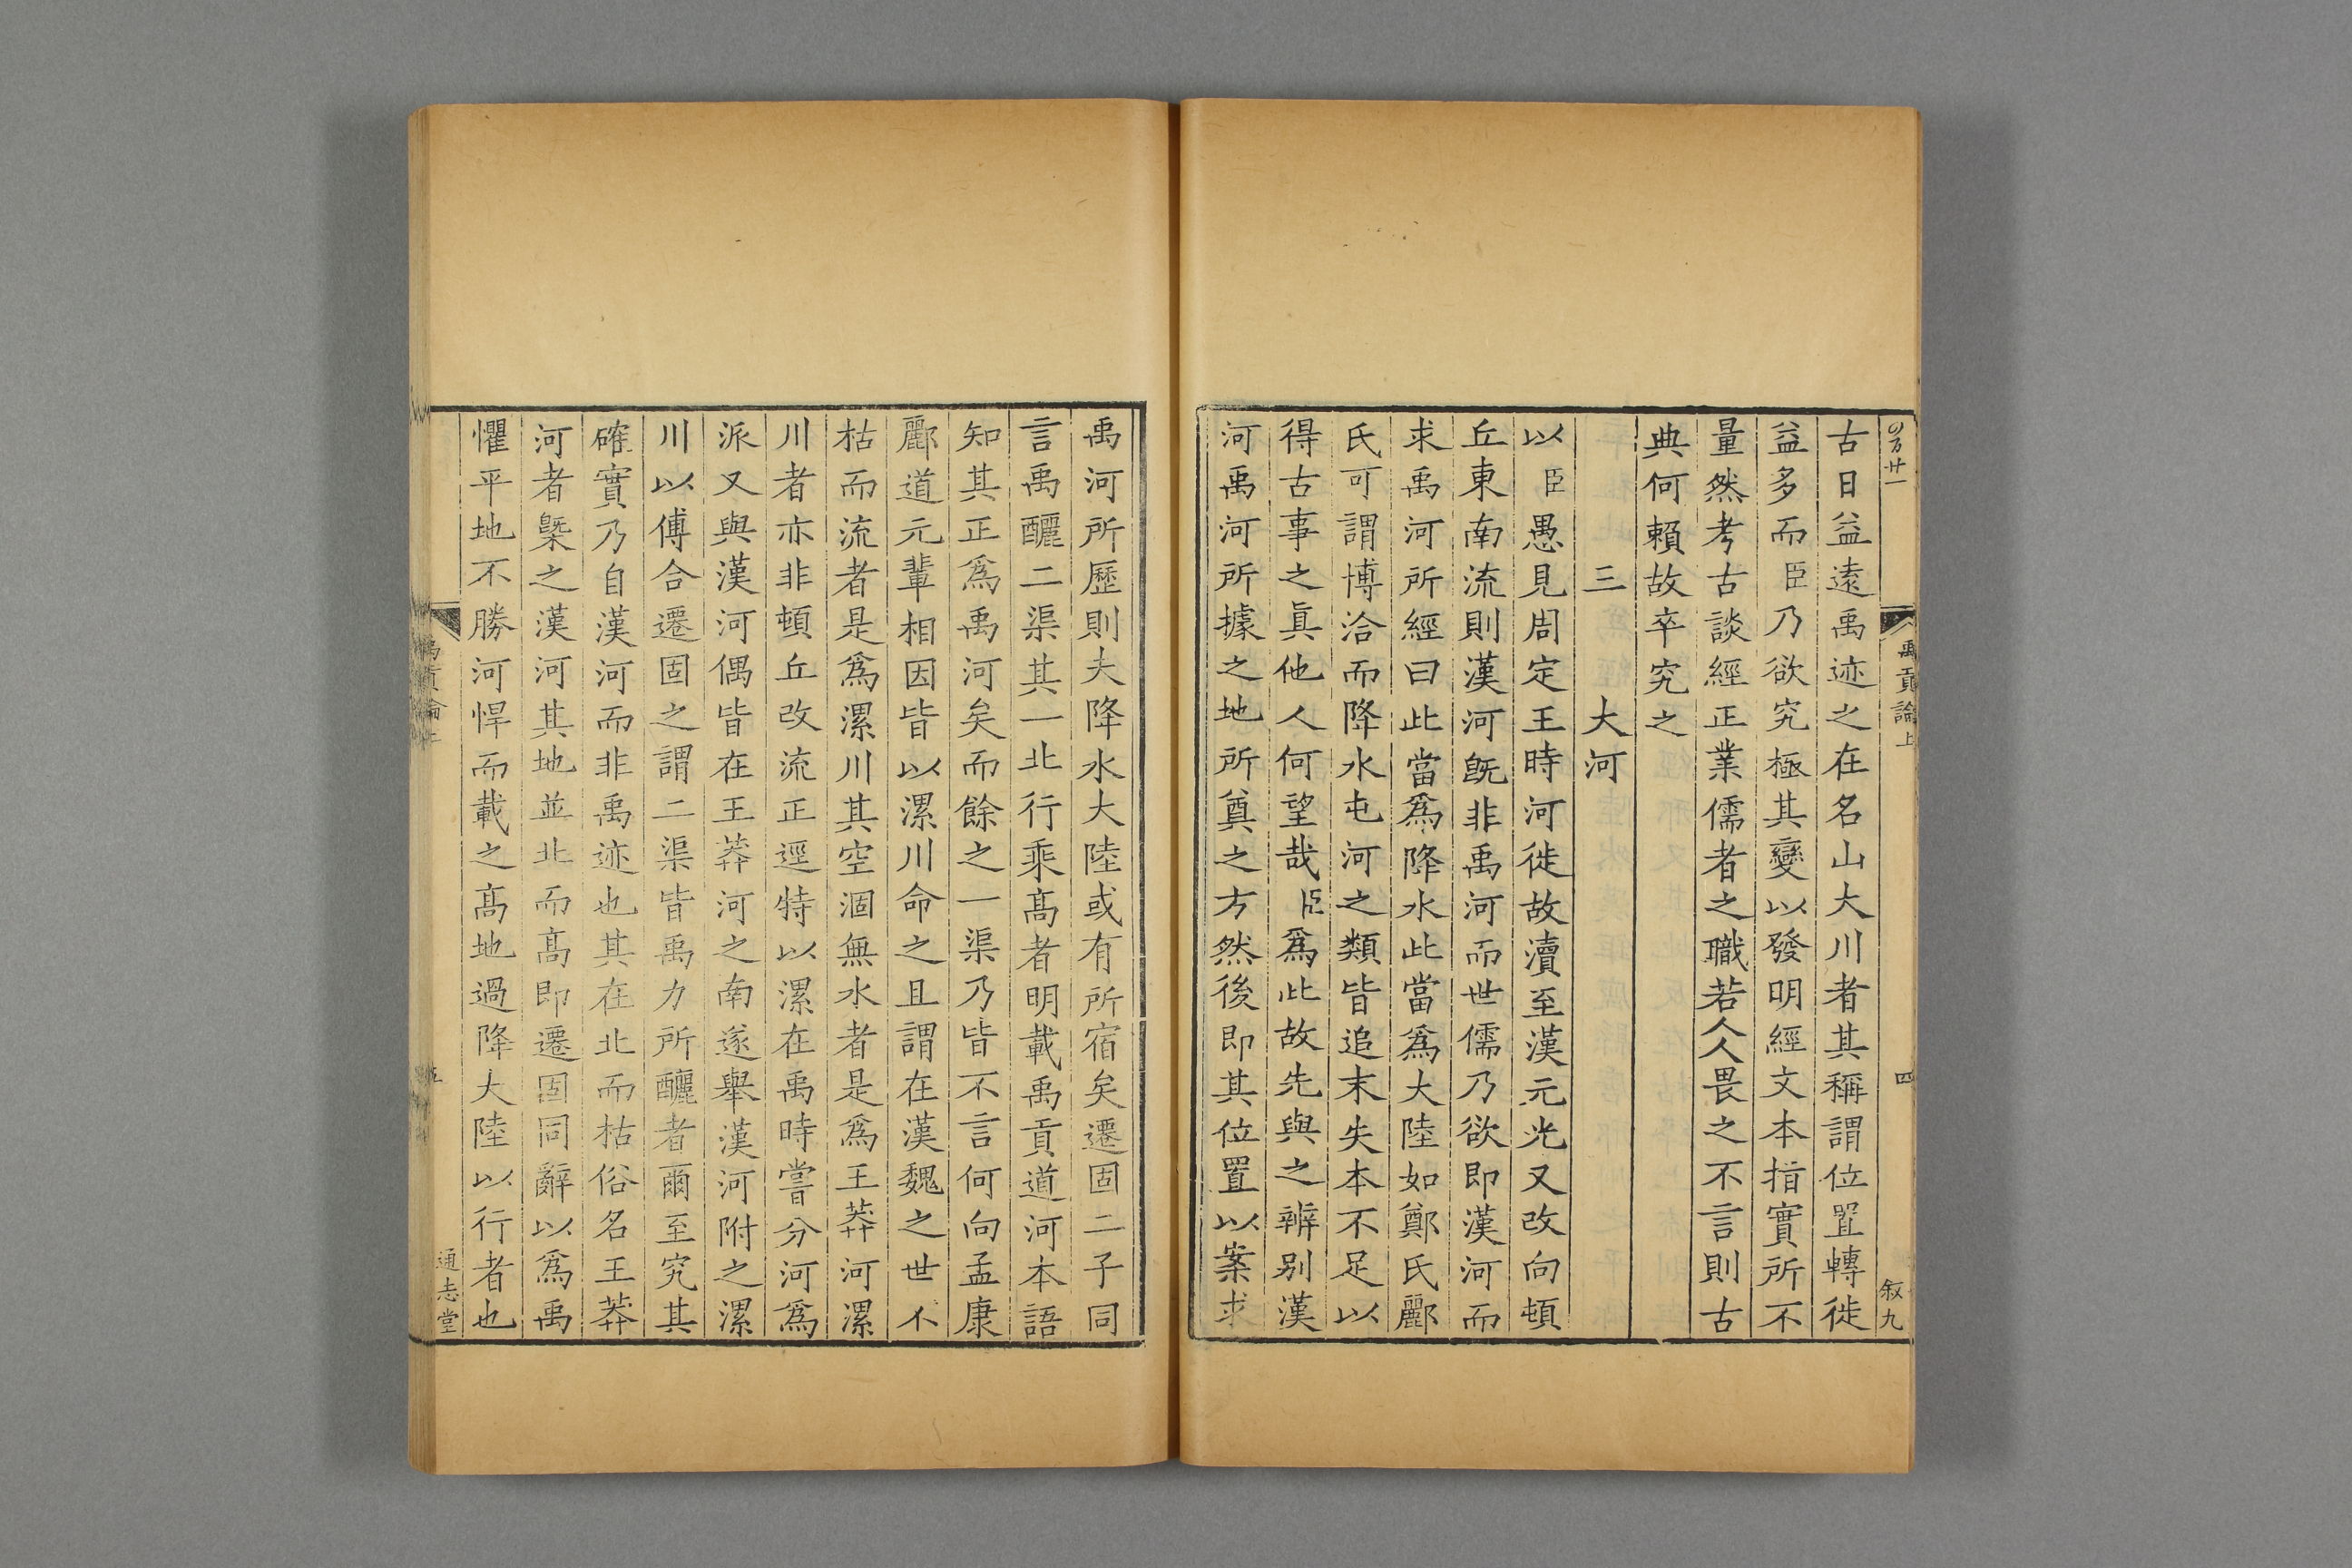 禹貢論上
四
叙九
古日益遠禹迹之在名山大川者其稱謂位置轉徙
益多而臣乃欲究極其變以發明經文本指實所不
量然考古談經正業儒者之職若人人畏之不言則古
典何賴故卒究之
三 大河
以臣愚見周定王時河徙故瀆至漢元光又改向頓
丘東南流則漢河旣非禹河而世儒乃欲即漢河而
求禹河所經曰此當爲降水此當爲大陸如鄭氏酈
氏可謂博洽而降水屯河之類皆追末失本不足以
得古事之眞他人何望哉臣爲此故先與之辨别漢
河禹河所據之地所奠之方然後即其位置以案求
禹河所歷則夫降水大陸或有所宿矣遷固二子同
言禹釃二渠其一北行乘髙者明載禹貢道河本語
知其正爲禹河矣而餘之一渠乃皆不言何向孟康
酈道元輩相因皆以漯川命之且謂在漢魏之世不
枯而流者是爲漯川其空涸無水者是爲王莽河漯
川者亦非頓丘改流正逕特以漯在禹時嘗分河爲
派又與漢河偶皆在王莽河之南遂舉漢河附之漯
川以傅合遷固之謂二渠皆禹力所釃者爾至究其
確實乃自漢河而非禹迹也其在北而枯俗名王莽
河者槩之漢河其地並北而髙即遷固同辭以爲禹
懼平地不勝河悍而載之髙地過降大陸以行者也
禹貢論上
五
通志堂